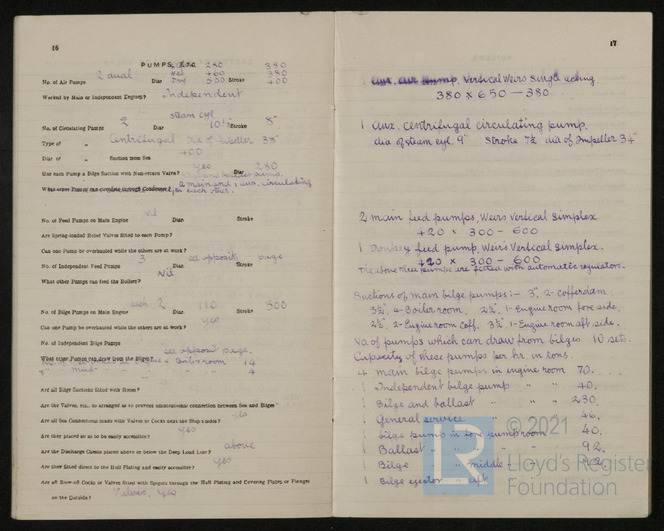 16
PUMPS, ETC.
280 380
2 dual 460 380
No. of Air Pumps Diar 500 Stroke 400
Worked by Main or Independent Engines? Independent
steam cyl
No. of Circulating Pumps 2 Diar 10½" Stroke 8"
Type of " Centrifugal Dia of Impeller 38"
400
Diar of " Suction from Sea
yes 280
Has each Pump a Bilge Suction with Non-return Valve? Diar
What other Pumps can circulate through Condenser? 2 main and 1 aux. circulating
each other.
Nil
No. of Feed Pumps on Main Engine Diar Stroke
Are Spring-loaded Relief Valves fitted to each Pump?
Can one Pump be overhauled while the others are at work?
3 as opposite page
No. of Independent Feed Pumps Diar Stroke
Nil
What other Pumps can feed the Boilers?
each 2 110 300
No. of Bilge Pumps on Main Engine Diar Stroke
yes
Can one Pump be overhauled while the others are at work?
No. of Independent Bilge Pumps
as opposit page.
What other Pumps can draw from the Bilges?
Boiler room 14
4
Are all Bilge Suctions fitted with Roses?
Are the Valves, &c., so arranged as to prevent unintentional connection between Sea and Bilges?
Are all Sea Connections made with Valves or Cocks next the Ship's sides?
yes
Are they placed so as to be easily accessible?
above
Are the Discharge Chests placed above or below the Deep Load Line?
yes
Are they fitted direct to the Hull Plating and easily accessible?
Are all Blow-off Cocks or Valves fitted with Spigots through the Hull Plating and Covering Plates or Flanges
on the Outside? Valves, yes
17
1 Aux. air pump, Vertical Weirs Single acting.
380 × 650 — 380
1 aux. centrifugal circulating pump.
dia of steam cyl. 9" Stroke 7½ dia of Impeller 34"
2 main feed pumps, Weirs Vertical Simplex
420 × 300 - 600
1 Donkey feed pump, Weir's Vertical Simplex.
420 × 300 - 600
The above three pumps are fitted with automatic regulators.
Suctions of main bilge pumps:— 3", 2-Cofferdam
3½", 4-Boiler room, 2½", 1-Engine room fore side,
2½", 2-Engine room Coff. 3½", 1-Engine room aft side.
No of pumps which can draw from bilges 10 sets.
Capacity of these pumps per hr. in tons.
4 main bilge pumps in engine room 70.
1 Independent bilge pump " " 40.
1 Bilge and ballast " " 230.
1 General service " " 46.
1 bilge pump in fore pumproom 40.
1 Ballast " " " 92.
1 Bilge " " middle
1 Bilge ejector " aft
LR
© 2021
Lloyd's Register
Foundation